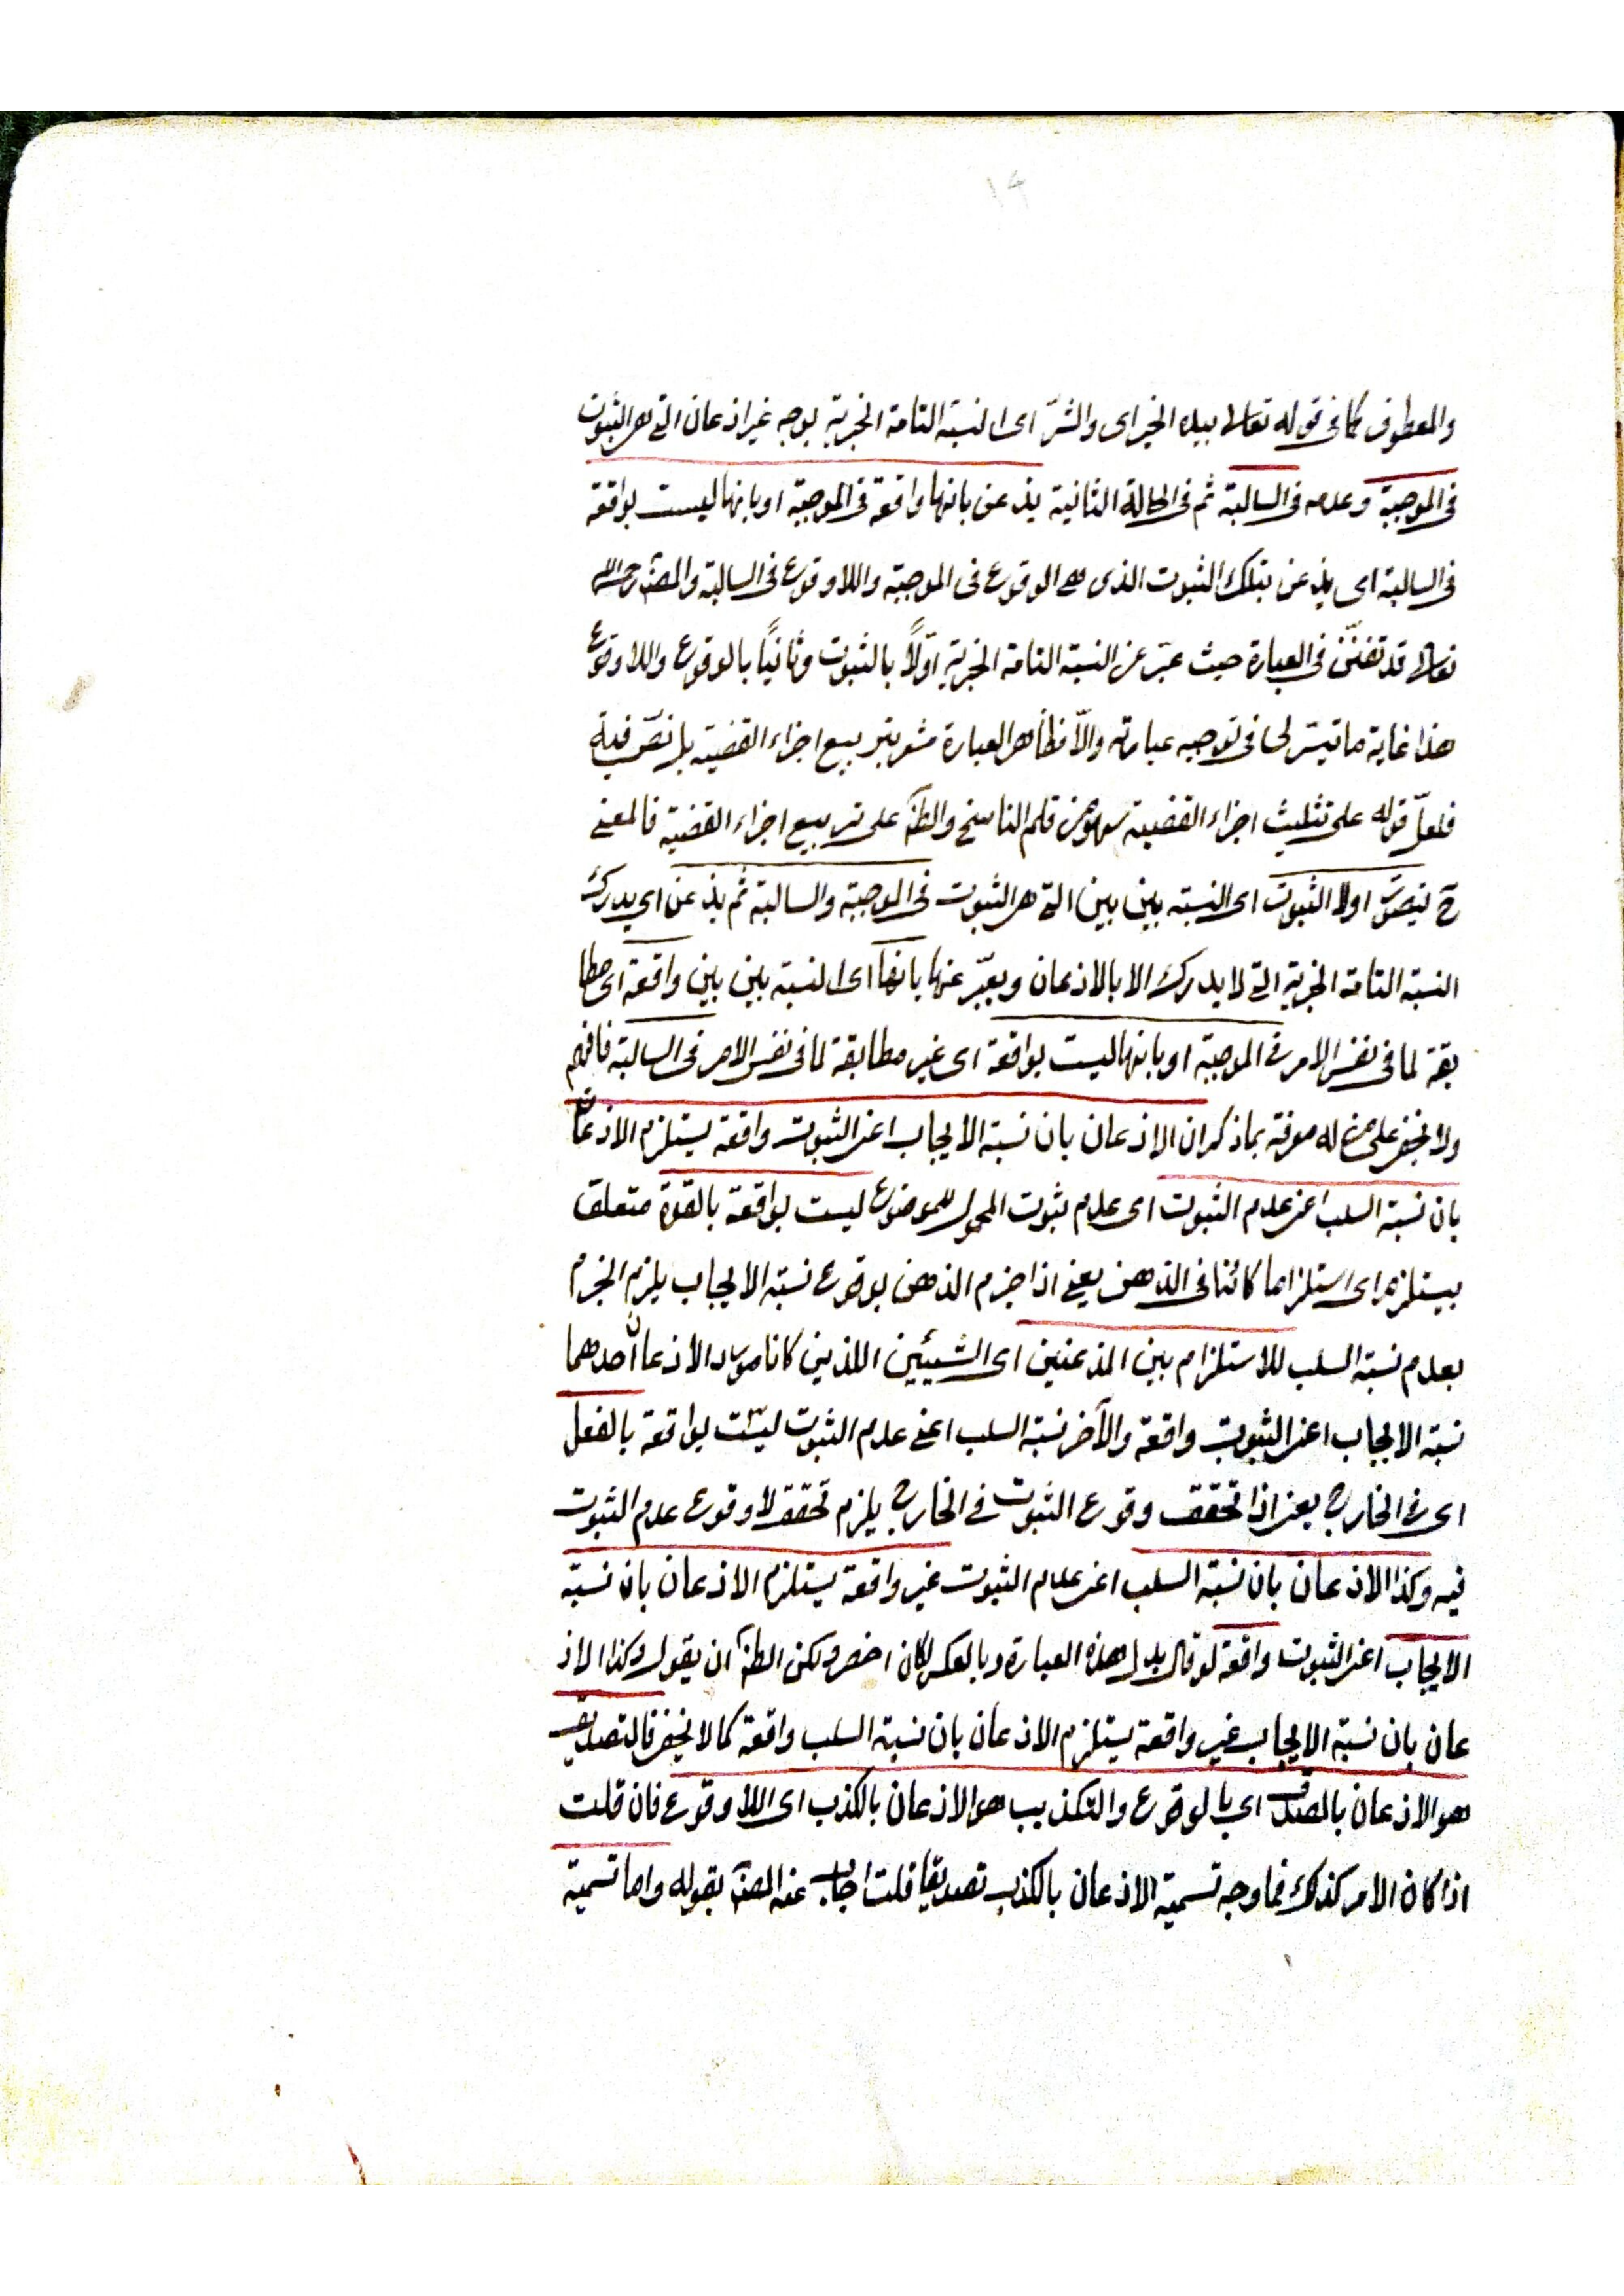 ١٤
والمعطوف كما فى قوله تعالى بيده الخير اى والشرّ اى النسبة التامة الخبرية بوجه غير اذعان التى هى الثبوت
فى الموجبة وعدمه فى السالبة ثم فى الحالة الثانية يذعن بانها واقعة فى الموجبة او بانها ليست بواقعة
فى السالبة اى يذعن بتلك الثبوت الذى هو الوقوع فى الموجبة واللاوقوع فى السالبة والمصنّف رحمه الله
تعالى قد تفنّن فى العبارة حيث عبّر عن النسبة التامة الخبرية اوّلاً بالثبوت وثانياً بالوقوع واللاوقوع
هذا غاية ما تيسّر لى فى توجيه عبارته والّا فظاهر العبارة مشعر بتربيع اجزاء القضية بل نصّ فيه
فلعلّ قوله على تثليث اجزاء القضية سهو من قلم الناسخ والظّ على تربيع اجزاء القضية فالمعنى
ح يتصوّر اولا الثبوت اى النسبة بين بين التى هى الثبوت فى الموجبة والسالبة ثم يذعن اى يدرك
النسبة التامة الخبرية التى لا يدرك الا بالاذعان ويعبّر عنها بانها اى النسبة بين بين واقعة اى مطا
بقة لما فى نفس الامر فى الموجبة او بانها ليست بواقعة اى غير مطابقة لما فى نفس الامر فى السالبة فافهم
ولا يخفى على من له معرفة بما ذكر ان الاذعان بان نسبة الايجاب اعنى الثبوت واقعة يستلزم الاذعان
بان نسبة السلب اعنى عدم الثبوت اى عدم ثبوت المحمول للموضوع ليست بواقعة بالقوة متعلق
بيستلزم اى استلزاما كائنا فى الذهن يعنى اذا جزم الذهن بوقوع نسبة الايجاب يلزم الجزم
بعدم نسبة السلب للاستلزام بين المذعنين اى الشيئين اللذين كانا مورد الاذعان احدهما
نسبة الايجاب اعنى الثبوت واقعة والآخر نسبة السلب اعنى عدم الثبوت ليست بواقعة بالفعل
اى فى الخارج يعنى اذا تحقق وقوع الثبوت فى الخارج يلزم تحقق لا وقوع عدم الثبوت
فيه وكذا الاذعان بان نسبة السلب اعنى عدم الثبوت غير واقعة يستلزم الاذعان بان نسبة
الايجاب اعنى الثبوت واقعة لو قال بدل هذه العبارة وبالعكس لكان اخصر ولكن الظّ ان يقول وكذا الاذ
عان بان نسبة الايجاب غير واقعة يستلزم الاذعان بان نسبة السلب واقعة كما لا يخفى فالتصديق
هو الاذعان بالصدق اى بالوقوع والتكذيب هو الاذعان بالكذب اى اللاوقوع فان قلت
اذا كان الامر كذلك فما وجه تسمية الاذعان بالكذب تصديقا قلت اجاب عنه المصنّ بقوله واما تسمية